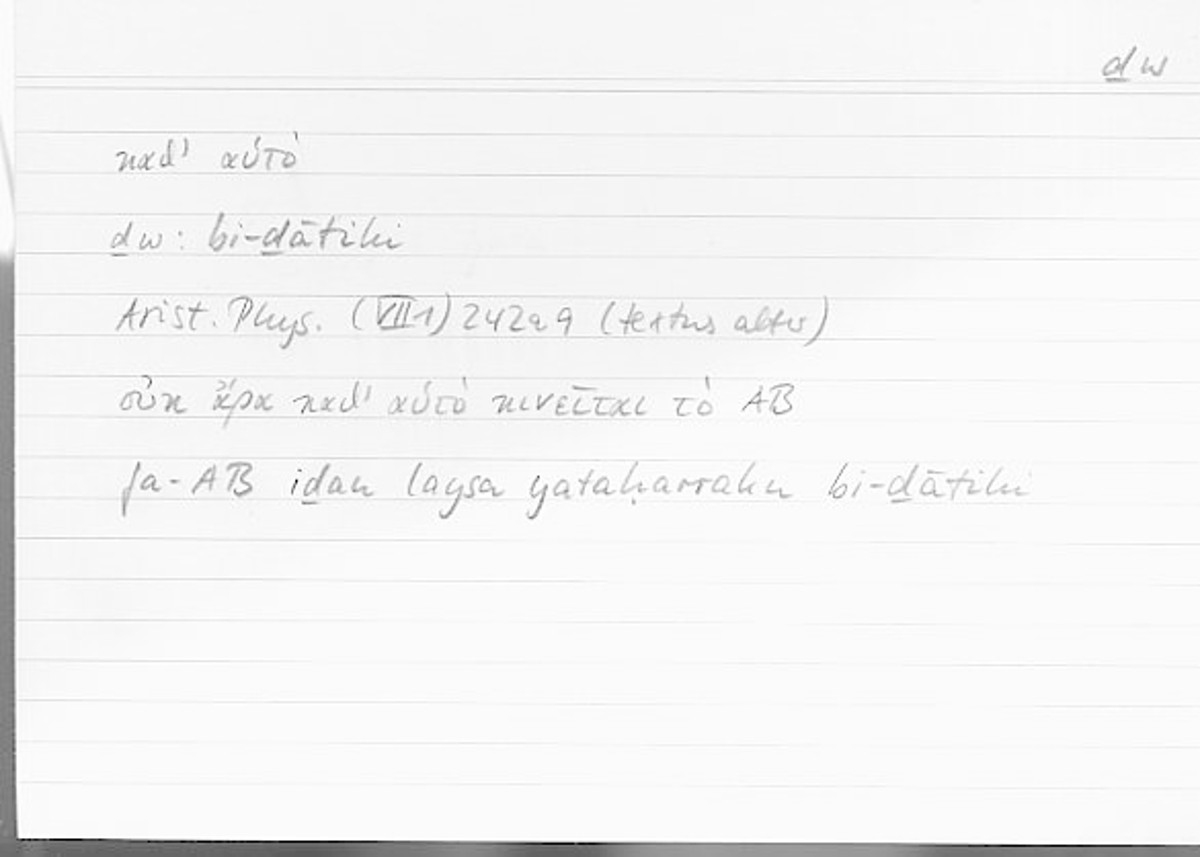 ḏw
καθ' αὑτὸ
ḏw: bi-ḏātihi
Arist. Phys. (VII 1) 242a9 (textus alter)
οὐκ ἄρα καθ' αὑτὸ κινεῖται τὸ AB
fa-AB iḏan laysa yataḥarraku bi-ḏātihi